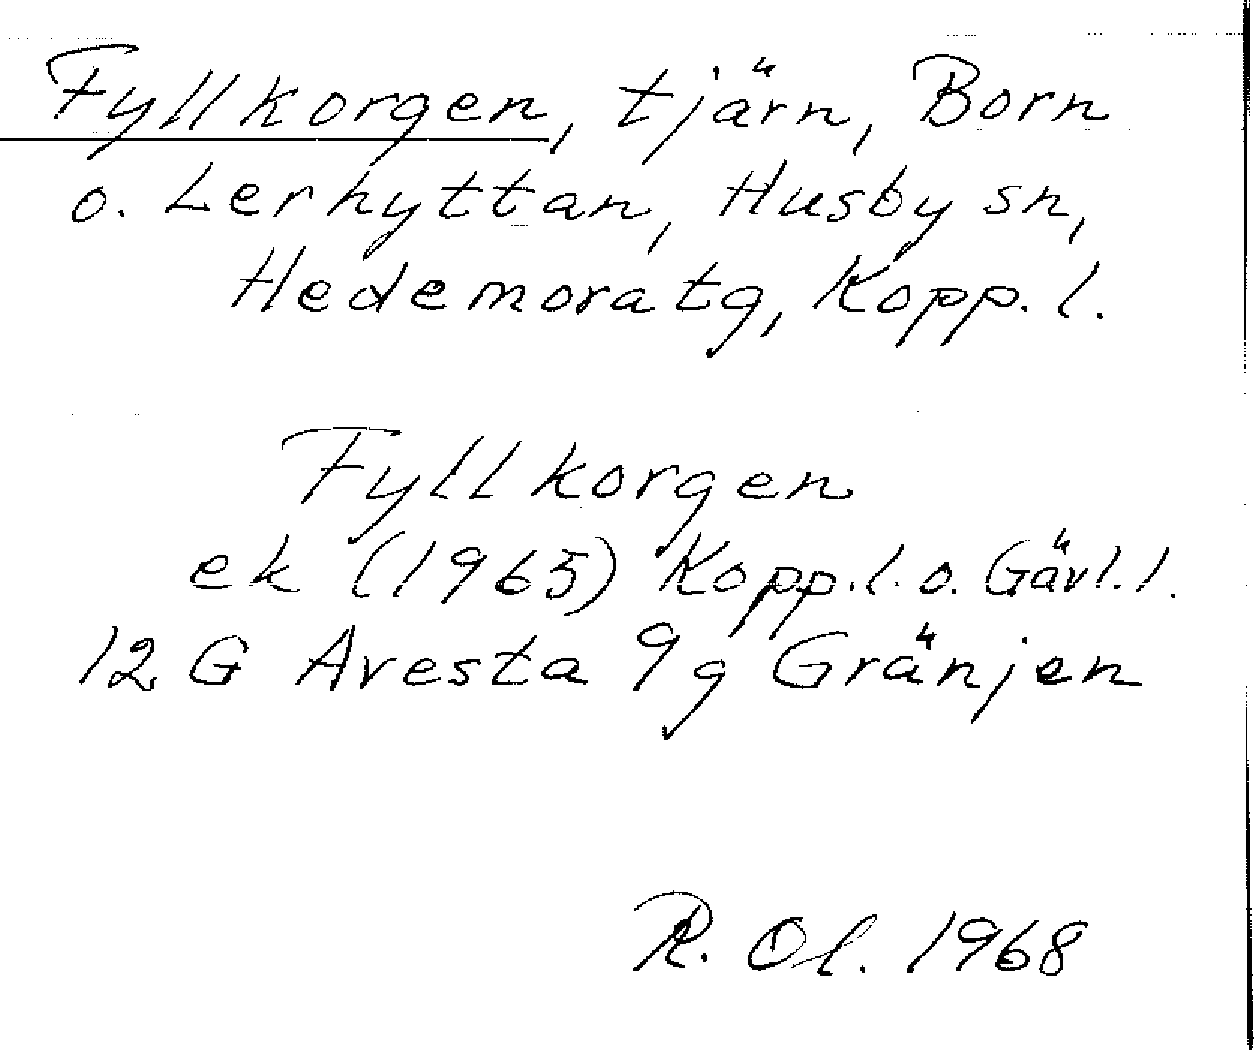 Fyllkorgen, tjärn, Born
o. Lerhyttan, Husby sn,
Hedemora tg, Kopp. l.
Fyllkorgen
ek (1965) Kopp. l. o. Gävl. l.
12 G Avesta 9g Gränjen
R. Ol. 1968